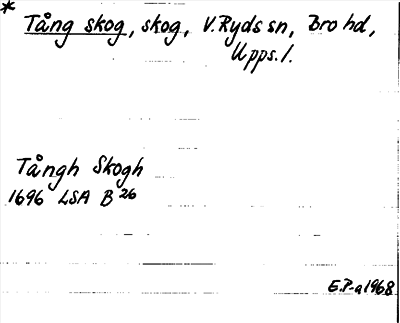 * Tång skog, skog, V. Ryds sn, Bro hd,
Upps. l.
Tångh Skogh
1696 LSA B 26
E.P-a 1968